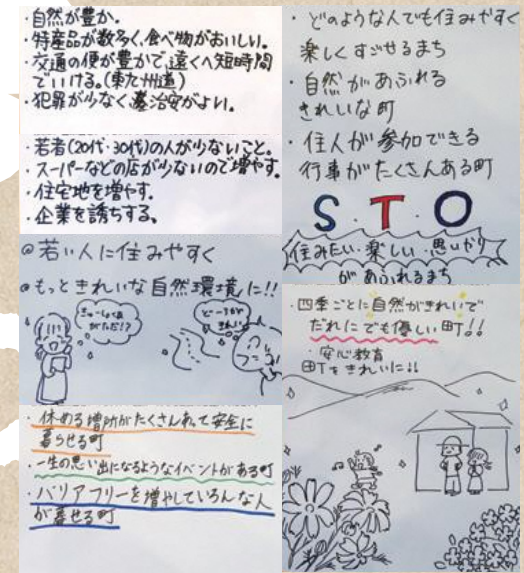 ・自然が豊か。
・特産品が数多く、食べ物がおいしい。
・交通の便が豊かで、遠くへ短時間
でいける。(東九州道)
・犯罪が少なく治安がよい。
・若者(20代・30代)の人が少ないこと。
・スーパーなどの店が少ないので増やす。
・住宅地を増やす。
・企業を誘ちする。
◎若い人に住みやすく
◎もっときれいな自然環境に!!
・休める場所がたくさんあって安全に
暮らせる町
・一生の思い出になるようなイベントがある町
・バリアフリーを増やしていろんな人
が暮せる町
・どのような人でも住みやすく
楽しくすごせるまち
・自然があふれる
きれいな町
・住人が参加できる
行事がたくさんある町
S・T・O
住みたい・楽しい・思いやり
があふれるまち
・四季ごとに自然がきれいで
だれにでも優しい町!!
・安心教育
町をきれいに!!